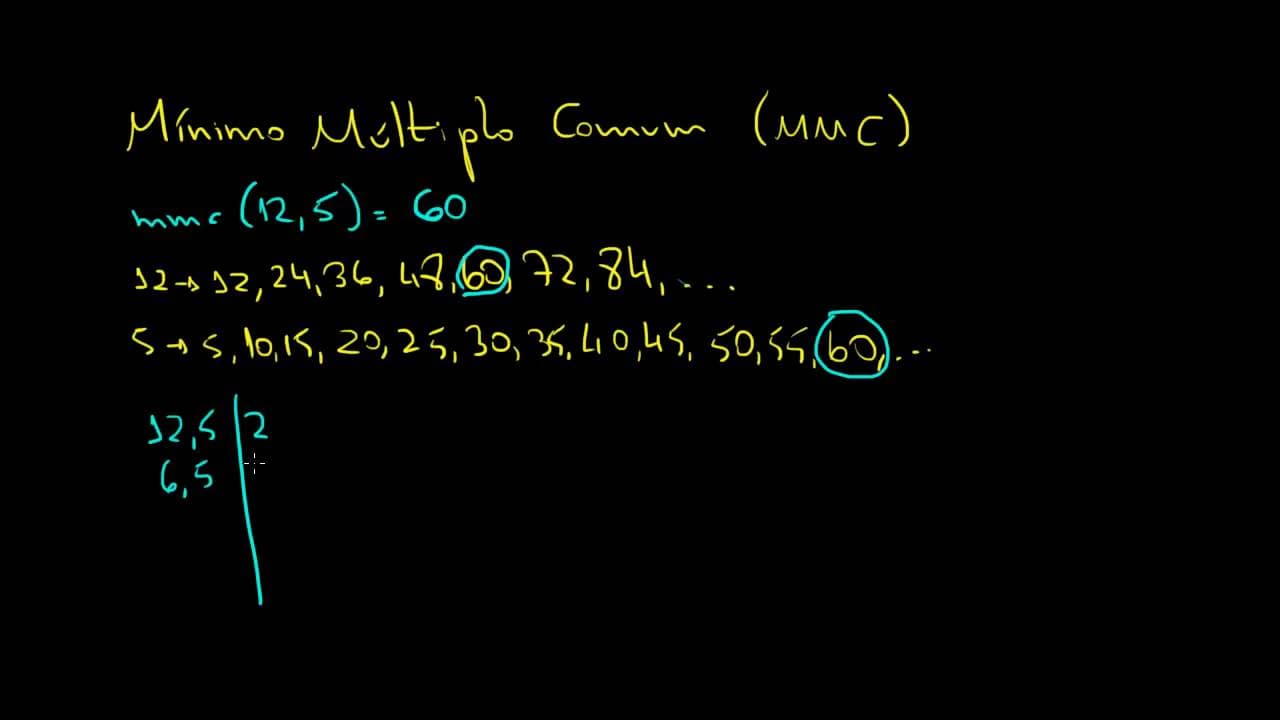 Mínimo Múltiplo Comum (MMC)
mmc (12,5) = 60
12→12,24,36,48,60,72,84,...
5→5,10,15,20,25,30,35,40,45,50,55,60,...
12,5|2
6,5|